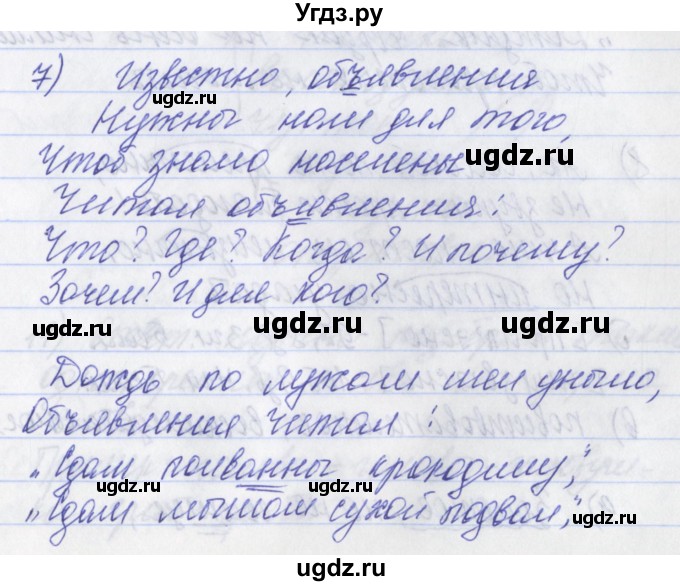 Угдз.ру
7) Известно, объявления
ugdz.ru ugdz.ru
Нужны нам для того,
Чтоб знало населены
ugdz.ru
Читая объявления:
Что? Где? Когда? И почему?
Зачем? И для кого?
ugdz.ru ugdz.ru
Дождь по лужам шел уныло,
Объявления читал:
"Сдам полванны крокодилу",
ugdz.ru ugdz.ru
"Сдам мышам сухой подвал",
ugdz.ru